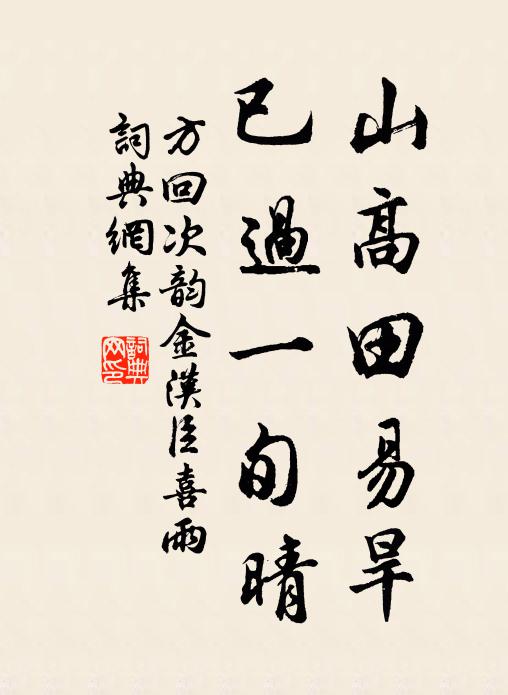 山高田易旱
已過一旬晴
方回次韵金漢臣喜雨
詞典網集
詞典
网印